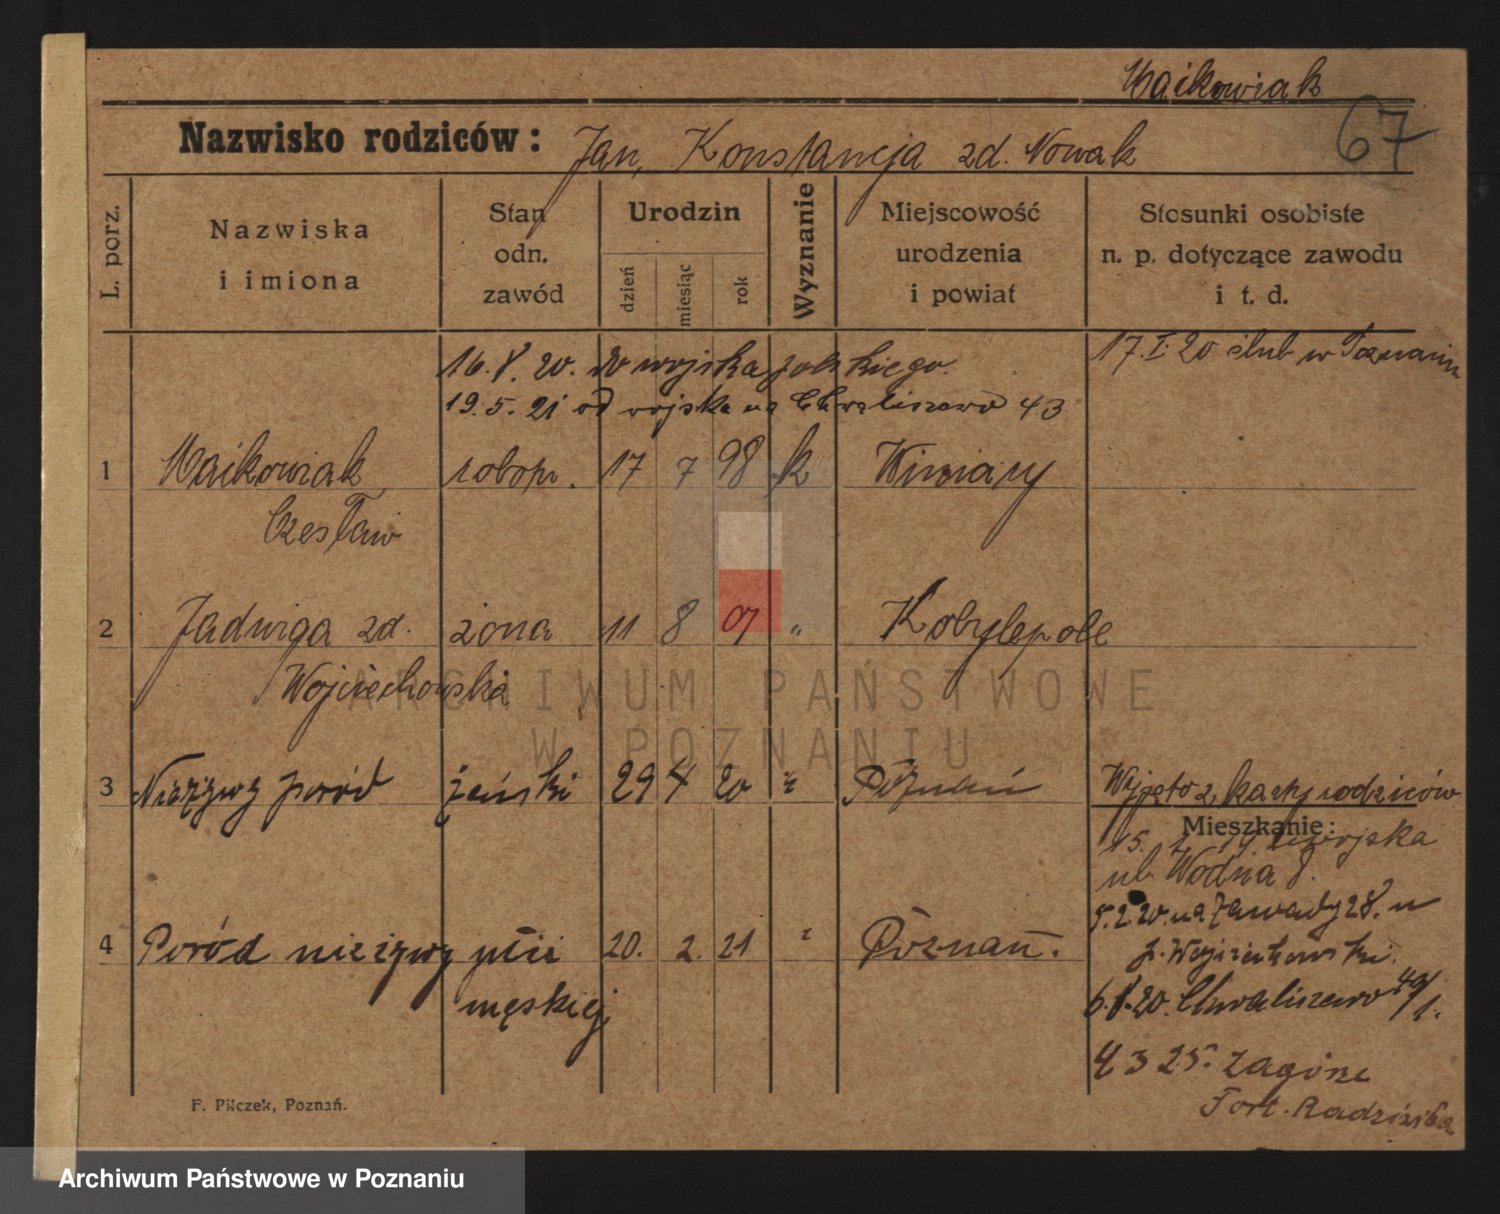 Maikowiak
67
Nazwisko rodziców: Jan, Konstancja zd. Nowak
L. porz.
Nazwiska i imiona
Stan odn. zawód
Urodzin
dzień
miesiąc
rok
Wyznanie
Miejscowość urodzenia i powiat
Stosunki osobiste n. p. dotyczące zawodu i t. d.
16.V.20. do wojska polskiego.
17.I.20 ślub w Poznaniu
19.5.21 od wojska na Chwaliszewo 43
1 Maikowiak robotn. 17 7 98 k Winiary
Czesław
2 Jadwiga zd. żona 11 8 01 " Kobylepole
Wojciechowska
3 Nieżywy poród żeński 29 4 20 " Poznań Wyjęto z karty rodziców
Mieszkanie:
15. 1. 19 z wojska
ul. Wodna 8.
5.2.20. na Zawady 28. u
p. Wojciechowski.
4 Poród nieżywy płci 20. 2. 21 " Poznań.
męskiej
6.V.20. Chwaliszewo 49/1.
4 3 25. Zagórze
Fort. Radziwiła
F. Pilczek, Poznań.
ARCHIWUM PAŃSTWOWE
W POZNANIU
Archiwum Państwowe w Poznaniu